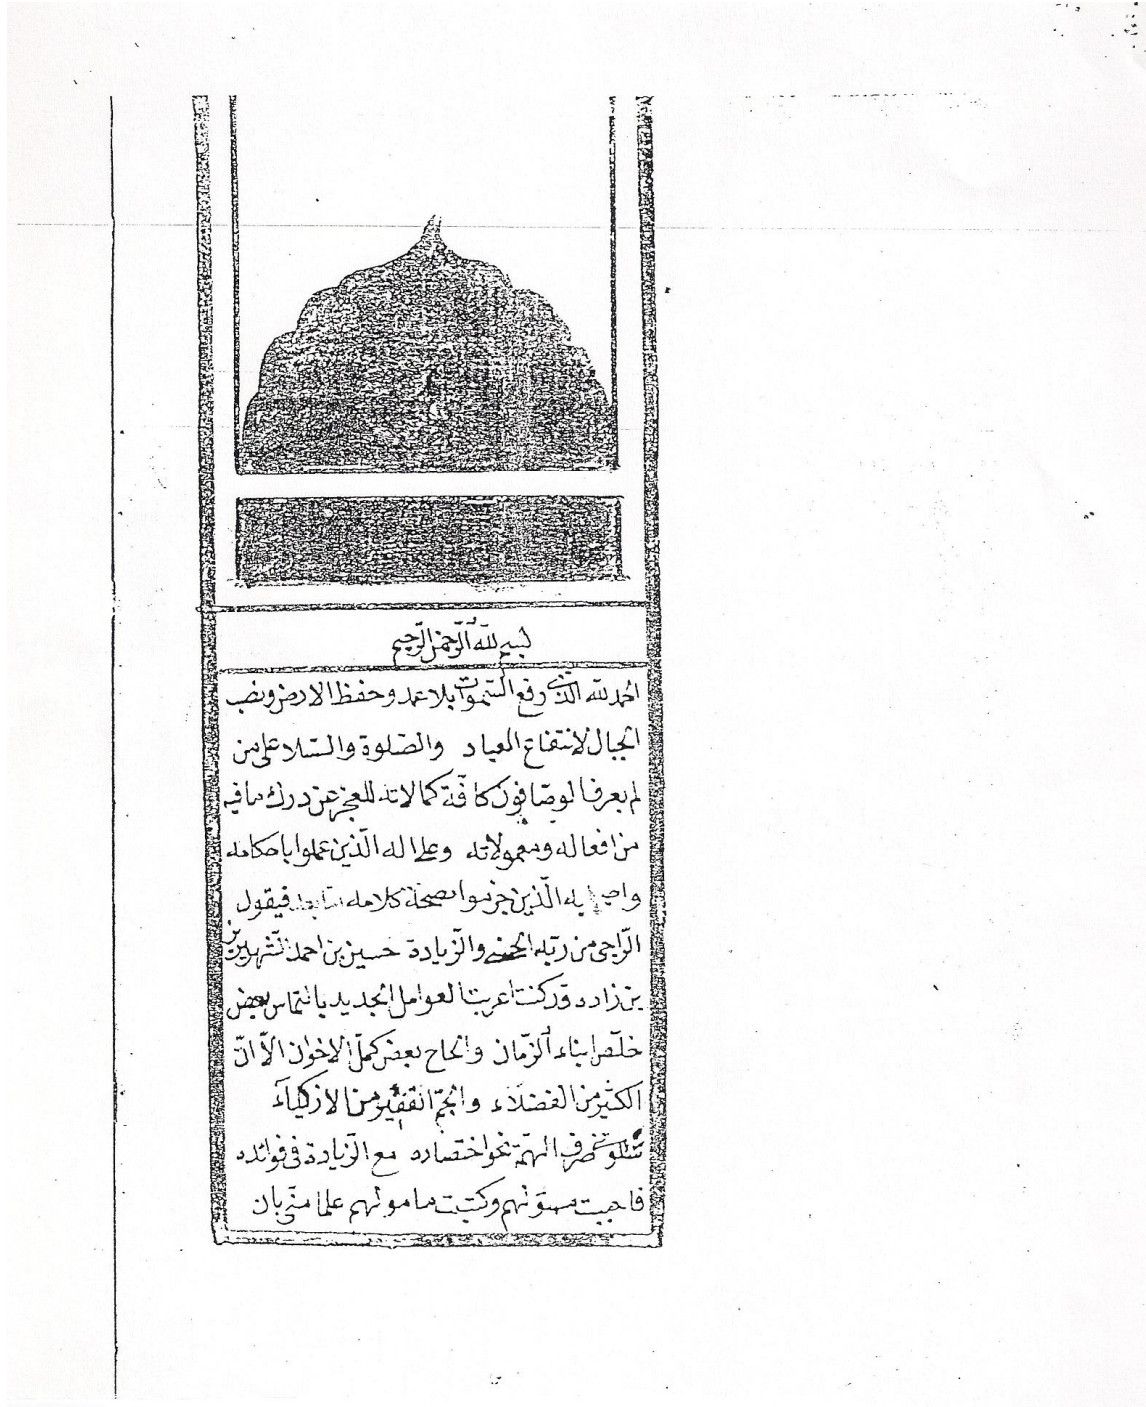 بسم الله الرحمن الرحيم
الحمد لله الذي رفع السموات بلا عمد وحفظ الارض ونصب
الجبال لانتفاع العباد والصلوة والسلا على من
لم يعرف الوصافون كافة كمالاته للعجز عن درك ما فيه
من افعاله ومعمولاته وعلى اله الذين عملوا باحكامه
واصحابه الذين جزموا بصحة كلامه بعد فيقول
الراجى من ربه الحسنى والزيادة حسين بن احمد الشهير
بن زاده قد كنت اعربت العوامل الجديد بالتماس بعض
خلص ابناء الزمان والحاح بعض كمل الاخوان الا ان
الكثير من الفضلاء والجم الغفير من الازكياء
صرف الهمة نحو اختصاره مع الزيادة فى فوائده
فاجبت مسؤلهم وكتبت مامولهم علما منى بان